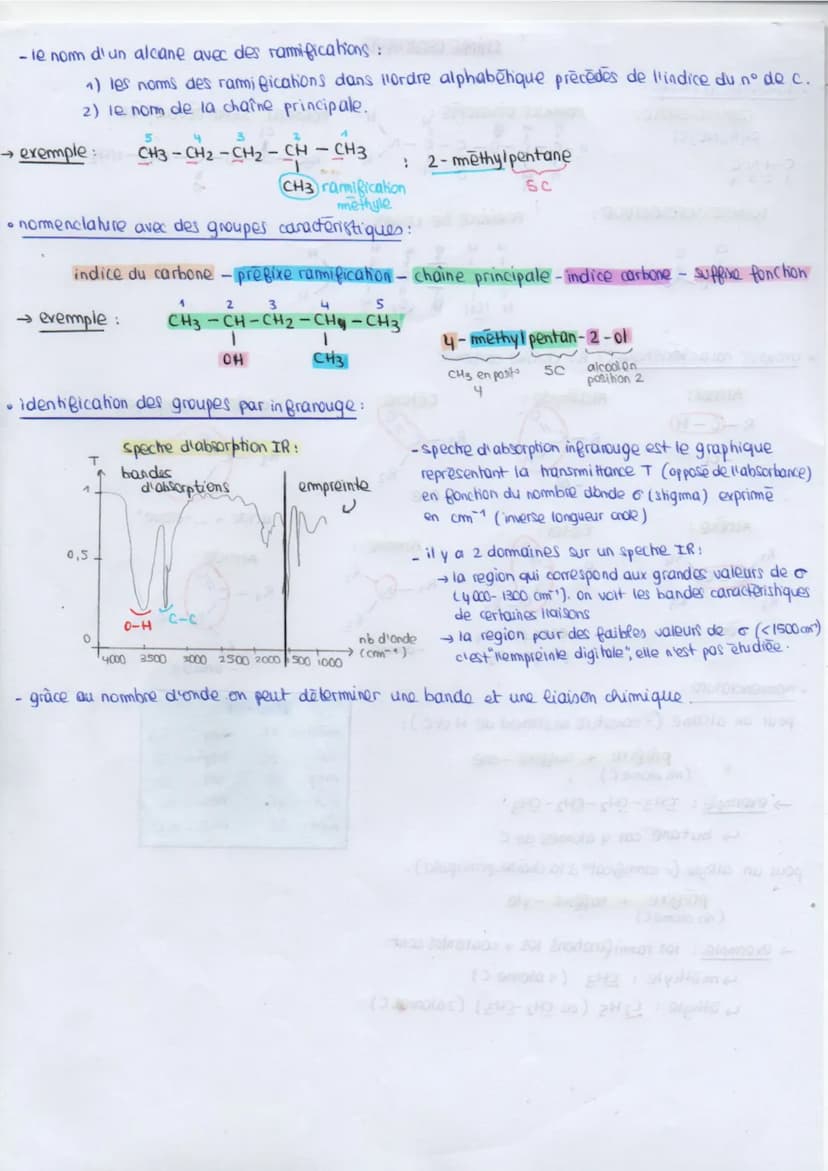 - le nom d'un alcane avec des ramifications :
1) les noms des ramifications dans l'ordre alphabétique précédés de l'indice du n° de C.
2) le nom de la chaîne principale.
5 4 3 2 1
→ exemple : CH3 - CH2 - CH2 - CH - CH3 : 2-méthylpentane
CH3 ramification 5C
méthyle
• nomenclature avec des groupes caractéristiques :
indice du carbone - préfixe ramification - chaîne principale - indice carbone - suffixe fonction
1 2 3 4 5
→ exemple : CH3 - CH - CH2 - CH - CH3
4-méthylpentan-2-ol
OH CH3
CH3 en posto 5C alcool en
4 position 2
• identification des groupes par infrarouge :
spectre d'absorption IR :
T
bandes
d'absorptions
empreinte
1
0,5
0
O-H C-C
4000 3500 3000 2500 2000 1500 1000
nb d'onde
(cm⁻¹)
- spectre d'absorption infrarouge est le graphique
représentant la transmittance T (opposé de l'absorbance)
en fonction du nombre d'onde σ (stigma) exprimé
en cm⁻¹ (inverse longueur onde)
- il y a 2 domaines sur un spectre IR :
→ la region qui correspond aux grandes valeurs de σ
(4000-1300 cm⁻¹). on voit les bandes caractéristiques
de certaines liaisons
→ la region pour des faibles valeurs de σ (<1500cm⁻¹)
c'est "l'empreinte digitale", elle n'est pas étudiée.
- grâce au nombre d'onde on peut déterminer une bande et une liaison chimique.